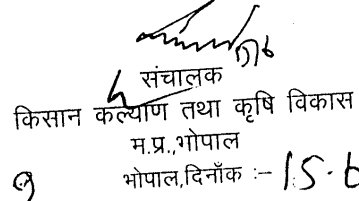 संचालक
किसान कल्याण तथा कृषि विकास
म.प्र.,भोपाल
भोपाल,दिनाँक :- 15.6